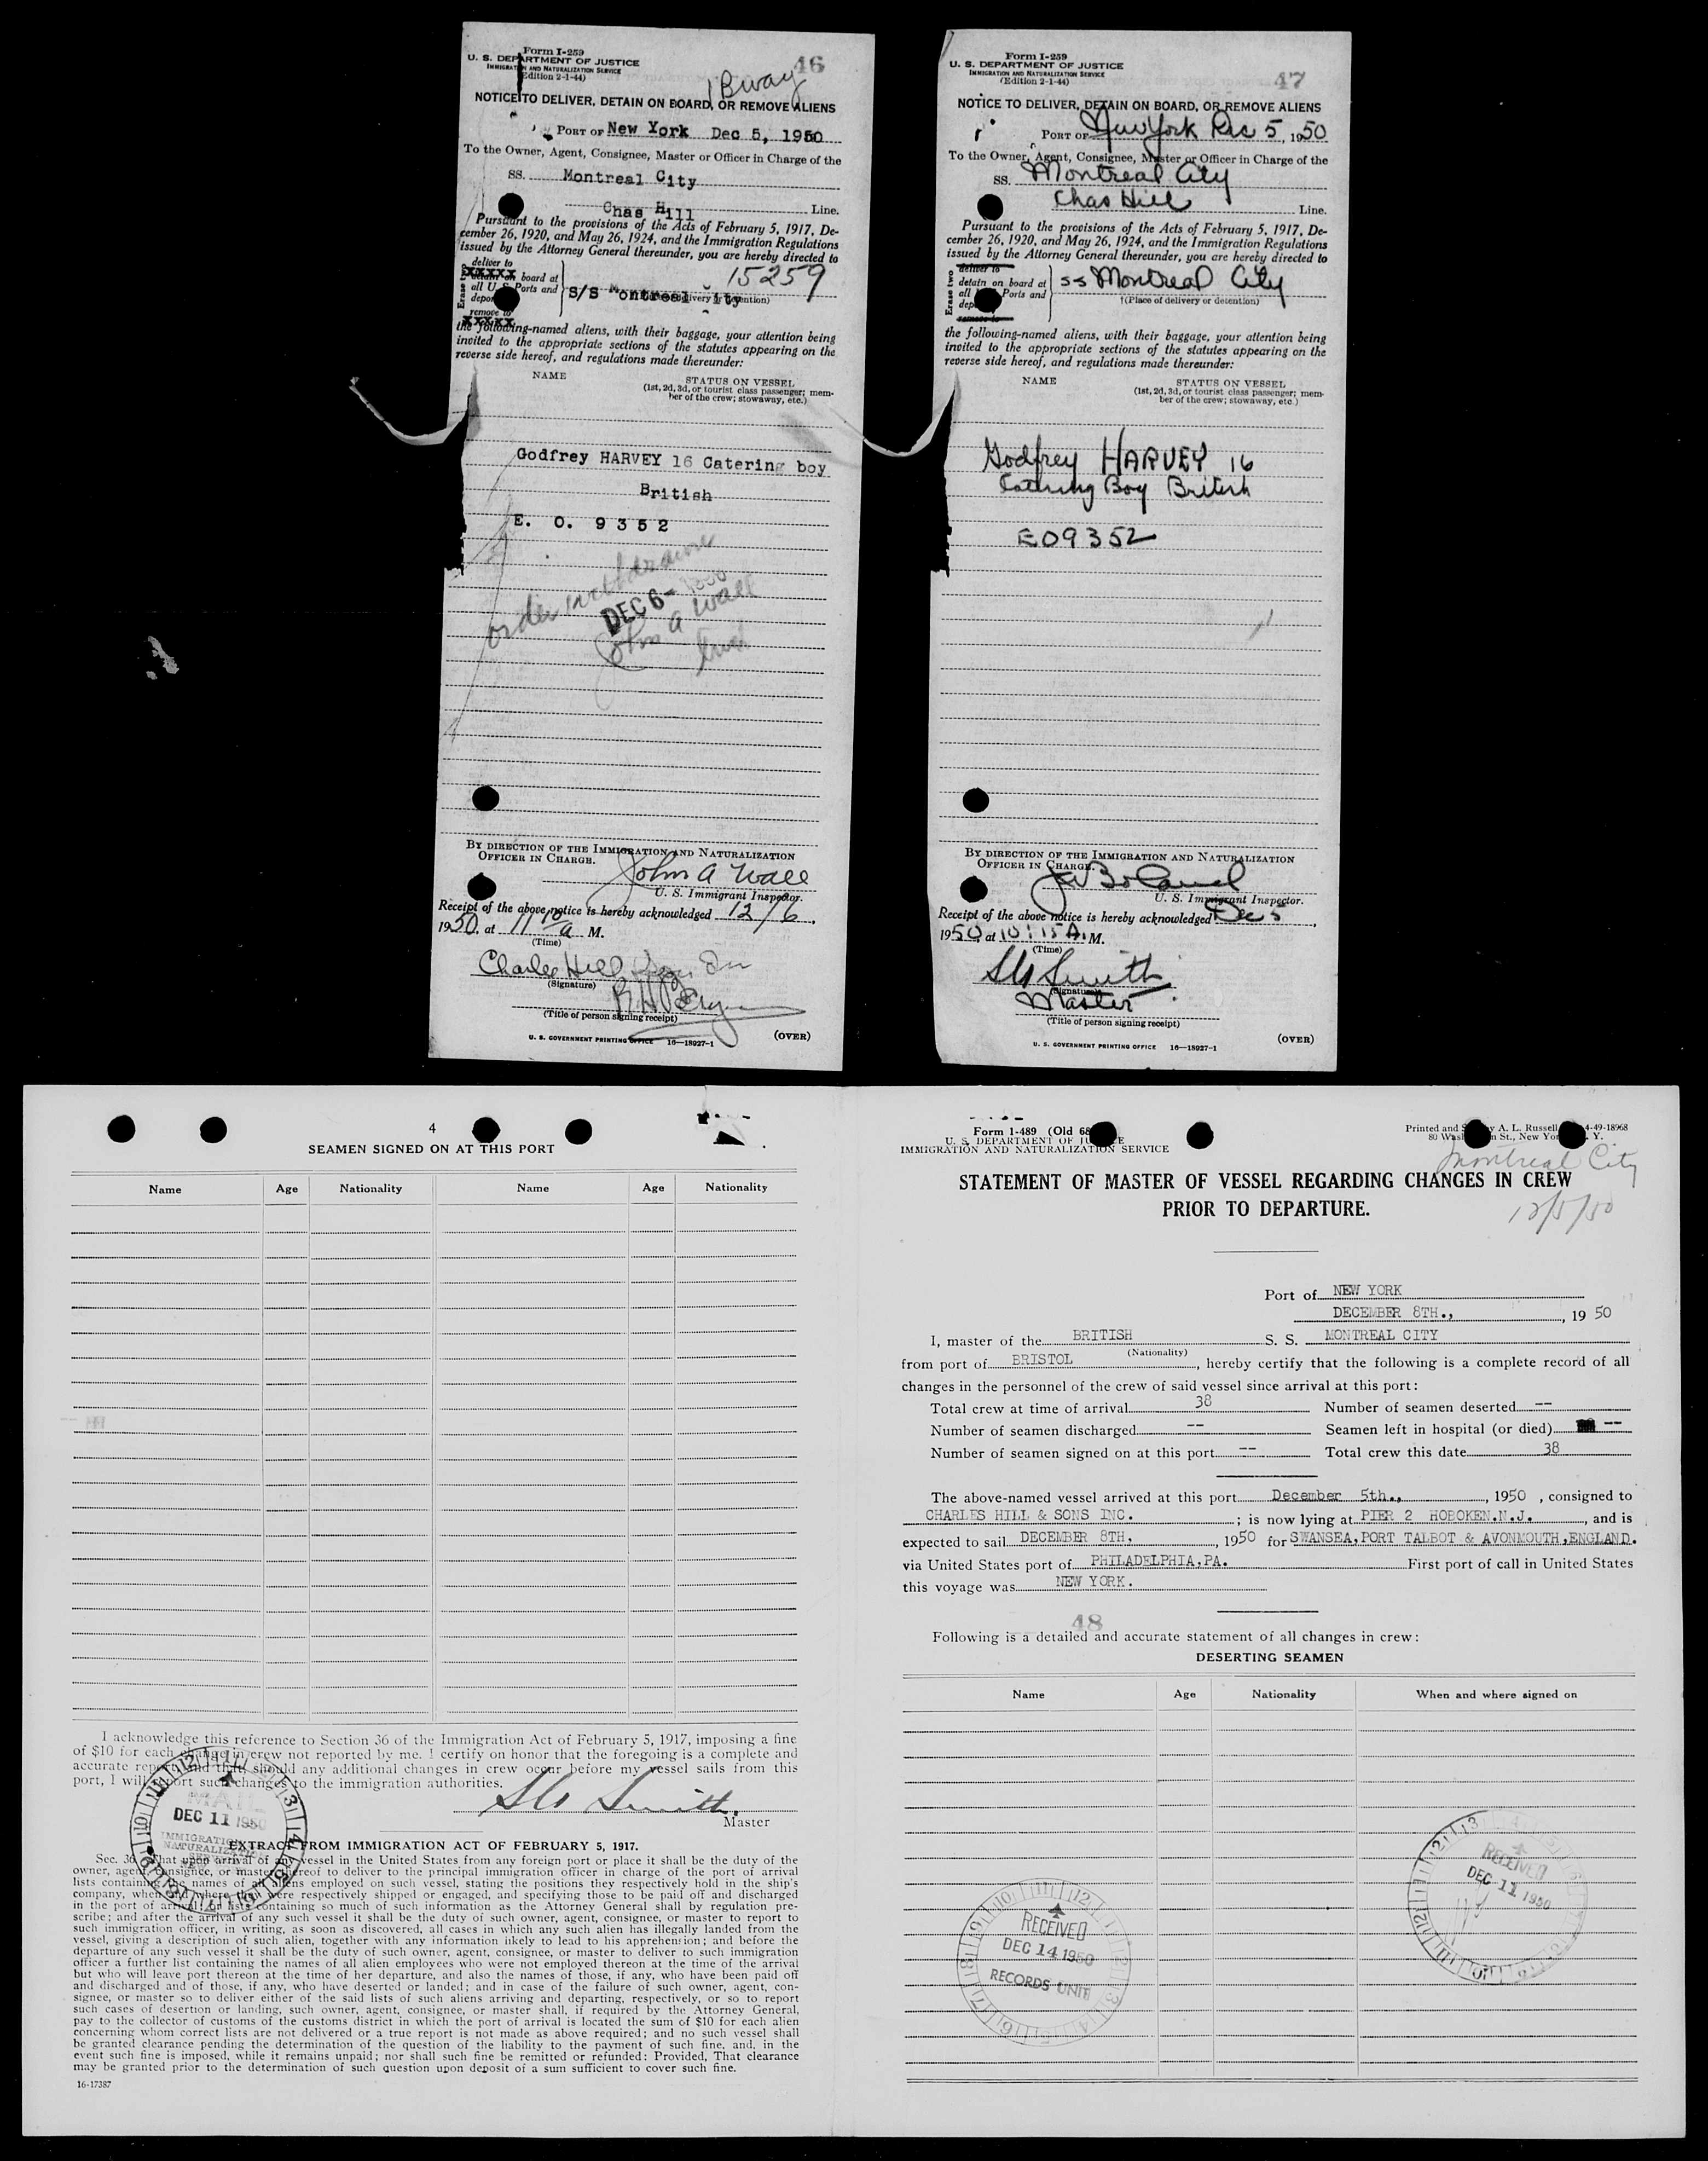 Form I-259
U. S. DEPARTMENT OF JUSTICE
IMMIGRATION AND NATURALIZATION SERVICE
(Edition 2-1-44)
46
1 Bway
NOTICE TO DELIVER, DETAIN ON BOARD, OR REMOVE ALIENS
PORT OF New York Dec 5, 1950
To the Owner, Agent, Consignee, Master or Officer in Charge of the
SS. Montreal City
Chas Hill Line.
Pursuant to the provisions of the Acts of February 5, 1917, De-
cember 26, 1920, and May 26, 1924, and the Immigration Regulations
issued by the Attorney General thereunder, you are hereby directed to
15259
Erase two
deliver to
detain on board at
all U. S. Ports and
deport
remove to
S/S Montreal City
(Place of delivery or detention)
the following-named aliens, with their baggage, your attention being
invited to the appropriate sections of the statutes appearing on the
reverse side hereof, and regulations made thereunder:
NAME
STATUS ON VESSEL
(1st, 2d, 3d, or tourist class passenger; mem-
ber of the crew; stowaway, etc.)
Godfrey HARVEY 16 Catering boy
British
E. O. 9352
order withdrawn
DEC 6 - 1950
John A Wall
BY DIRECTION OF THE IMMIGRATION AND NATURALIZATION
OFFICER IN CHARGE.
John A Wall
U. S. Immigrant Inspector.
Receipt of the above notice is hereby acknowledged 12/6,
1950, at 11 10/a M.
(Time)
Charles Hill Sons Inc
(Signature)
(Title of person signing receipt)
U. S. GOVERNMENT PRINTING OFFICE 16—18927-1
(OVER)
Form I-259
U. S. DEPARTMENT OF JUSTICE
IMMIGRATION AND NATURALIZATION SERVICE
(Edition 2-1-44)
47
NOTICE TO DELIVER, DETAIN ON BOARD, OR REMOVE ALIENS
PORT OF New York Dec 5, 1950
To the Owner, Agent, Consignee, Master or Officer in Charge of the
SS. Montreal City
Chas Hill Line.
Pursuant to the provisions of the Acts of February 5, 1917, De-
cember 26, 1920, and May 26, 1924, and the Immigration Regulations
issued by the Attorney General thereunder, you are hereby directed to
Erase two
deliver to
detain on board at
all U. S. Ports and
deport
remove to
SS Montreal City
†(Place of delivery or detention)
the following-named aliens, with their baggage, your attention being
invited to the appropriate sections of the statutes appearing on the
reverse side hereof, and regulations made thereunder:
NAME
STATUS ON VESSEL
(1st, 2d, 3d, or tourist class passenger; mem-
ber of the crew; stowaway, etc.)
Godfrey HARVEY 16
Catering Boy British
EO9352
BY DIRECTION OF THE IMMIGRATION AND NATURALIZATION
OFFICER IN CHARGE.
U. S. Immigrant Inspector.
Receipt of the above notice is hereby acknowledged Dec 5,
1950, at 10:15 A. M.
(Time)
Smith
(Signature)
Master
(Title of person signing receipt)
U. S. GOVERNMENT PRINTING OFFICE 16—18927-1
(OVER)
4
SEAMEN SIGNED ON AT THIS PORT
Name Age Nationality Name Age Nationality
I acknowledge this reference to Section 36 of the Immigration Act of February 5, 1917, imposing a fine
of $10 for each change in crew not reported by me. I certify on honor that the foregoing is a complete and
accurate report and that should any additional changes in crew occur before my vessel sails from this
port, I will report such changes to the immigration authorities.
Smith.
Master
MAIL
DEC 11 1950
IMMIGRATION
NATURALIZATION
SERVICE
EXTRACT FROM IMMIGRATION ACT OF FEBRUARY 5, 1917.
Sec. 36. That upon arrival of any vessel in the United States from any foreign port or place it shall be the duty of the
owner, agent, consignee, or master thereof to deliver to the principal immigration officer in charge of the port of arrival
lists containing the names of all aliens employed on such vessel, stating the positions they respectively hold in the ship's
company, when and where they were respectively shipped or engaged, and specifying those to be paid off and discharged
in the port of arrival; or lists containing so much of such information as the Attorney General shall by regulation pre-
scribe; and after the arrival of any such vessel it shall be the duty of such owner, agent, consignee, or master to report to
such immigration officer, in writing, as soon as discovered, all cases in which any such alien has illegally landed from the
vessel, giving a description of such alien, together with any information likely to lead to his apprehension; and before the
departure of any such vessel it shall be the duty of such owner, agent, consignee, or master to deliver to such immigration
officer a further list containing the names of all alien employees who were not employed thereon at the time of the arrival
but who will leave port thereon at the time of her departure, and also the names of those, if any, who have been paid off
and discharged and of those, if any, who have deserted or landed; and in case of the failure of such owner, agent, con-
signee, or master so to deliver either of the said lists of such aliens arriving and departing, respectively, or so to report
such cases of desertion or landing, such owner, agent, consignee, or master shall, if required by the Attorney General,
pay to the collector of customs of the customs district in which the port of arrival is located the sum of $10 for each alien
concerning whom correct lists are not delivered or a true report is not made as above required; and no such vessel shall
be granted clearance pending the determination of the question of the liability to the payment of such fine, and, in the
event such fine is imposed, while it remains unpaid; nor shall such fine be remitted or refunded: Provided, That clearance
may be granted prior to the determination of such question upon deposit of a sum sufficient to cover such fine.
16-17387
Form 1-489 (Old 68
U. S. DEPARTMENT OF JUSTICE
IMMIGRATION AND NATURALIZATION SERVICE
Printed and Sold by A. L. Russell, 4-49-18968
80 Washington St., New York, N. Y.
Montreal City
12/5/50
STATEMENT OF MASTER OF VESSEL REGARDING CHANGES IN CREW
PRIOR TO DEPARTURE.
Port of NEW YORK
DECEMBER 8TH., , 19 50
I, master of the BRITISH S. S. MONTREAL CITY
(Nationality)
from port of BRISTOL, hereby certify that the following is a complete record of all
changes in the personnel of the crew of said vessel since arrival at this port:
Total crew at time of arrival 38 Number of seamen deserted --
Number of seamen discharged -- Seamen left in hospital (or died) --
Number of seamen signed on at this port -- Total crew this date 38
The above-named vessel arrived at this port December 5th., , 1950 , consigned to
CHARLES HILL & SONS INC. ; is now lying at PIER 2 HOBOKEN.N.J. , and is
expected to sail DECEMBER 8TH. , 1950 for SWANSEA,PORT TALBOT & AVONMOUTH,ENGLAND.
via United States port of PHILADELPHIA,PA. First port of call in United States
this voyage was NEW YORK.
48
Following is a detailed and accurate statement of all changes in crew:
DESERTING SEAMEN
Name Age Nationality When and where signed on
RECEIVED
DEC 11 1950
RECEIVED
DEC 14 1950
RECORDS UNIT